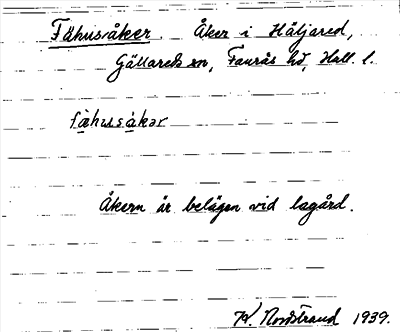 Fähusåker. Åker i Häljared,
Gällareds sn, Faurås hd, Hall. l.
fähusåkər
Åkern är belägen vid lagård.
K. Nordstrand 1939.